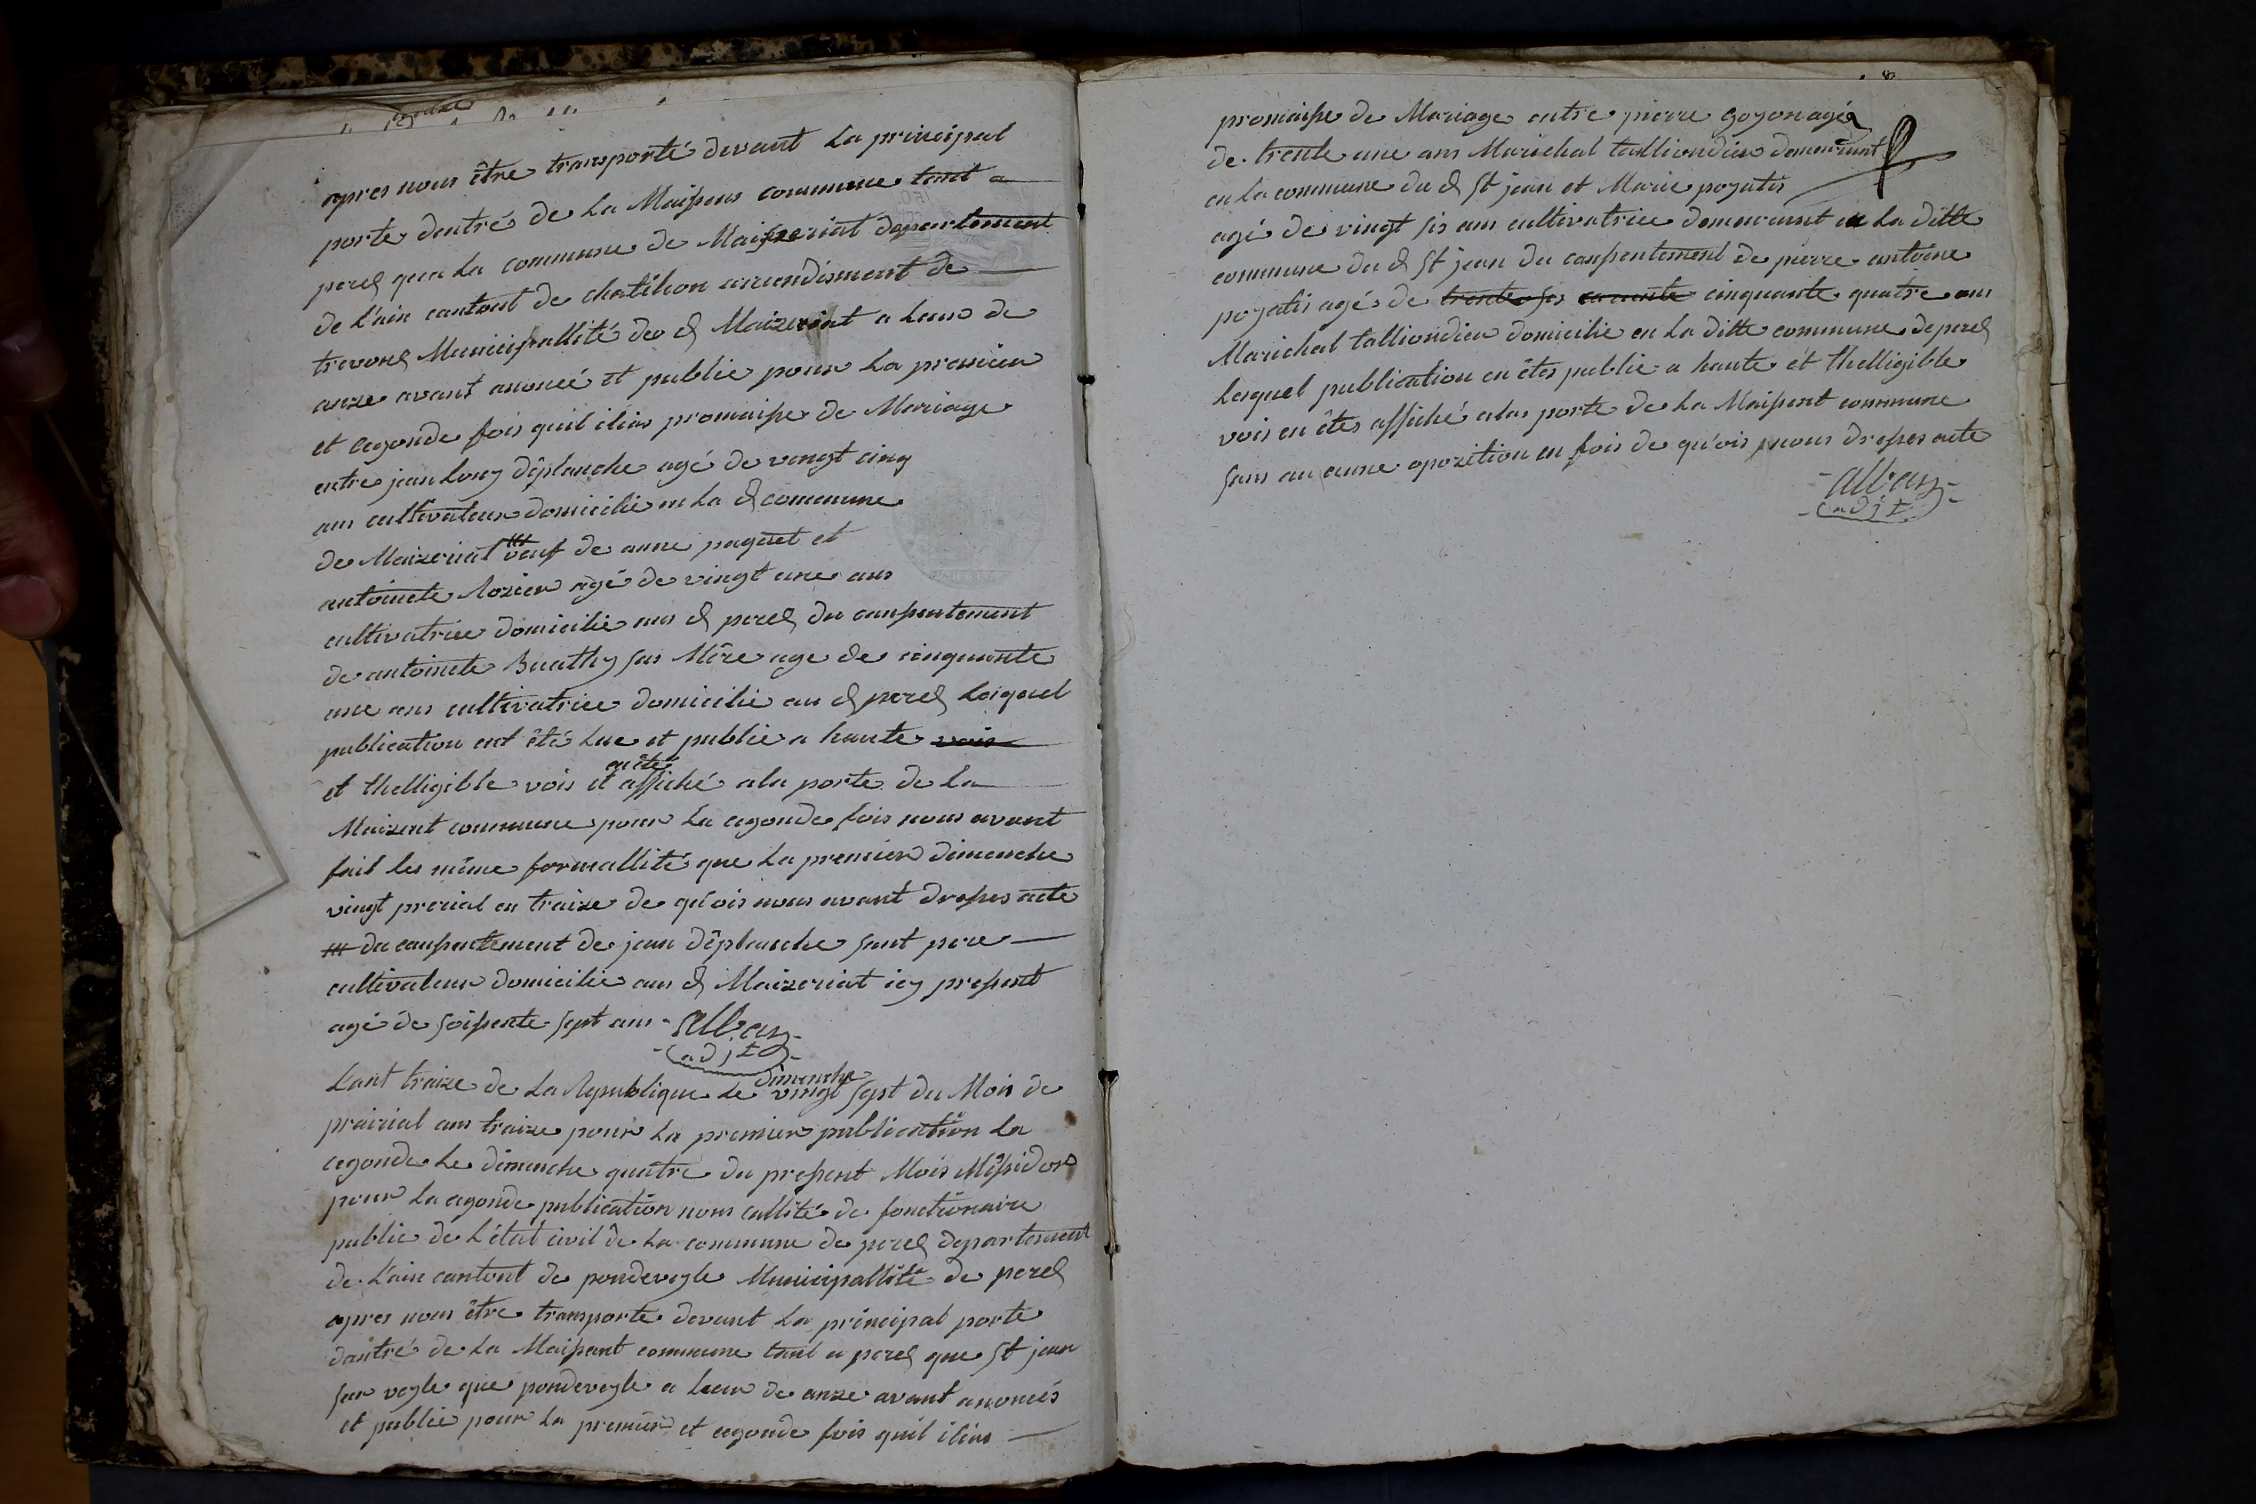 apres nous être transporté devant La principal
porte dentré de La Maisons commune tant a
perex qua La commune de Maizeriat departement
de L'ain cantont de chatilion arrondisment de
trevoux Municipallité du d Maizeriat a Leur de
anze avant anoncé et publie pour La premier
et cegonde fois quil ilias promaisse de Mariage
entre jean Louy déplanche agé de vengt cinq
ans cultivateur domicilie en La d commune
de Maizeriat veuf de anne paquet et
antoinete Rozier agé de vingt une ans
cultivatrice domicilie aus d perex du consentement
de antoinete Buathy sas Mêre age de cinquante
une ans cultivatrice domicilie au d perex Laiquel
publication ent êté Lue et publie a haute vois
et thelligible vois et affiché ala porte de La
Maizent commune pour La cegonde fois nous avant
fait les même formallité que La premier dimenche
vingt prerial en traize de qu'ois nous avant dresses acte
du consentement de jean déplanche sont pere
cultivateur domicilie aus d Maizeriat icy present
agé de soissente sept ans alban
adjt
L'ant traize de La Republique Le dimenche vingt sept du Mois de
prairial ans traize pour La premier publication La
cegonde Le dimenche quatre du present Mois Messidor
pour La cegonde publication nous callité de fonctionaire
public de L'état civil de La commune de perex departement
de L'ain cantont de pondeveyle Municipallité de perex
apres nous être transporte devant La principal porte
dantré de La Maisant commune tant a perex que St jean
sur veyle que pondeveyle a Leur de anze avant anoncés
et publie pour La premier et cegonde fois quil ilias
promaisse de Mariage entre pierre Goyon agé
de trente une ans Marichal talliondier demeurant
en La commune du d St jean et Marie poyatis
agé de vingt sis ans cultivatrice demeurant en La ditte
commune du d St jean du consentement de pierre antoine
poyatis agé de trente sis cinquante quatre ans
Marichal talliondier domicilie en La ditte commune de perex
Lesquel publication en êtes publie a haute et thelligible
vois en êtes affiché alas porte de La Maisent commune
sans au cunne opozition en fois de qu'ois nous dresses acte
alban
adjt